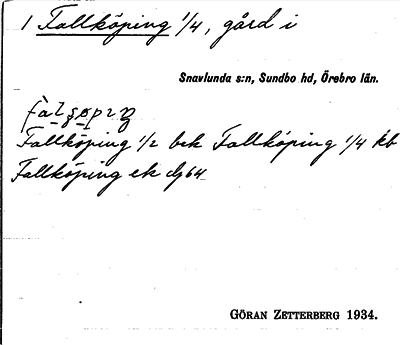 1 Fallköping 1/4, gård i
Snavlunda s:n, Sundbo hd, Örebro län.
Fallköping 1/2 bek Fallköping 1/4 kb
Fallköping ek dg 64
GÖRAN ZETTERBERG 1934.